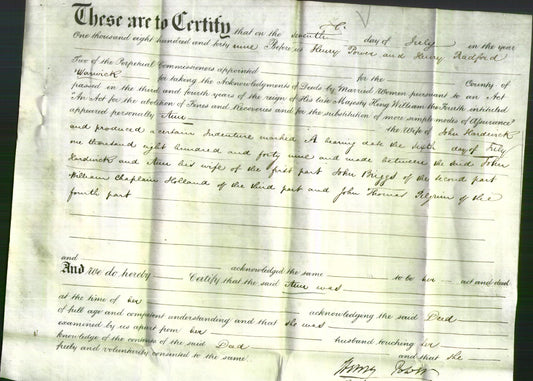 These are to Certify that on the seventh day of July in the year
One thousand eight hundred and forty nine Before us Henry Power and Henry Radford
Two of the Perpetual Commissioners appointed for the County of
Warwick for taking the Acknowledgments of Deeds by Married Women pursuant to an Act
passed in the third and fourth years of the reign of His late Majesty King William the Fourth intituled
An Act for the abolition of Fines and Recoveries and for the substitution of more simple modes of Assurance
appeared personally Ann the Wife of John Hardwick
and produced a certain Indenture marked A bearing date the sixth day of July
one thousand eight hundred and forty nine and made between the said John
Hardwick and Ann his wife of the first part John Briggs of the second part
William Chaplain Holland of the third part and John Thomas Pilgrim of the
fourth part
and acknowledged the same to be her act and deed
And We do hereby Certify that the said Ann was
at the time of her acknowledging the said Deed
of full age and competent understanding and that she was
examined by us apart from her husband touching her
knowledge of the contents of the said Deed and that she
freely and voluntarily consented to the same.
Henry Power